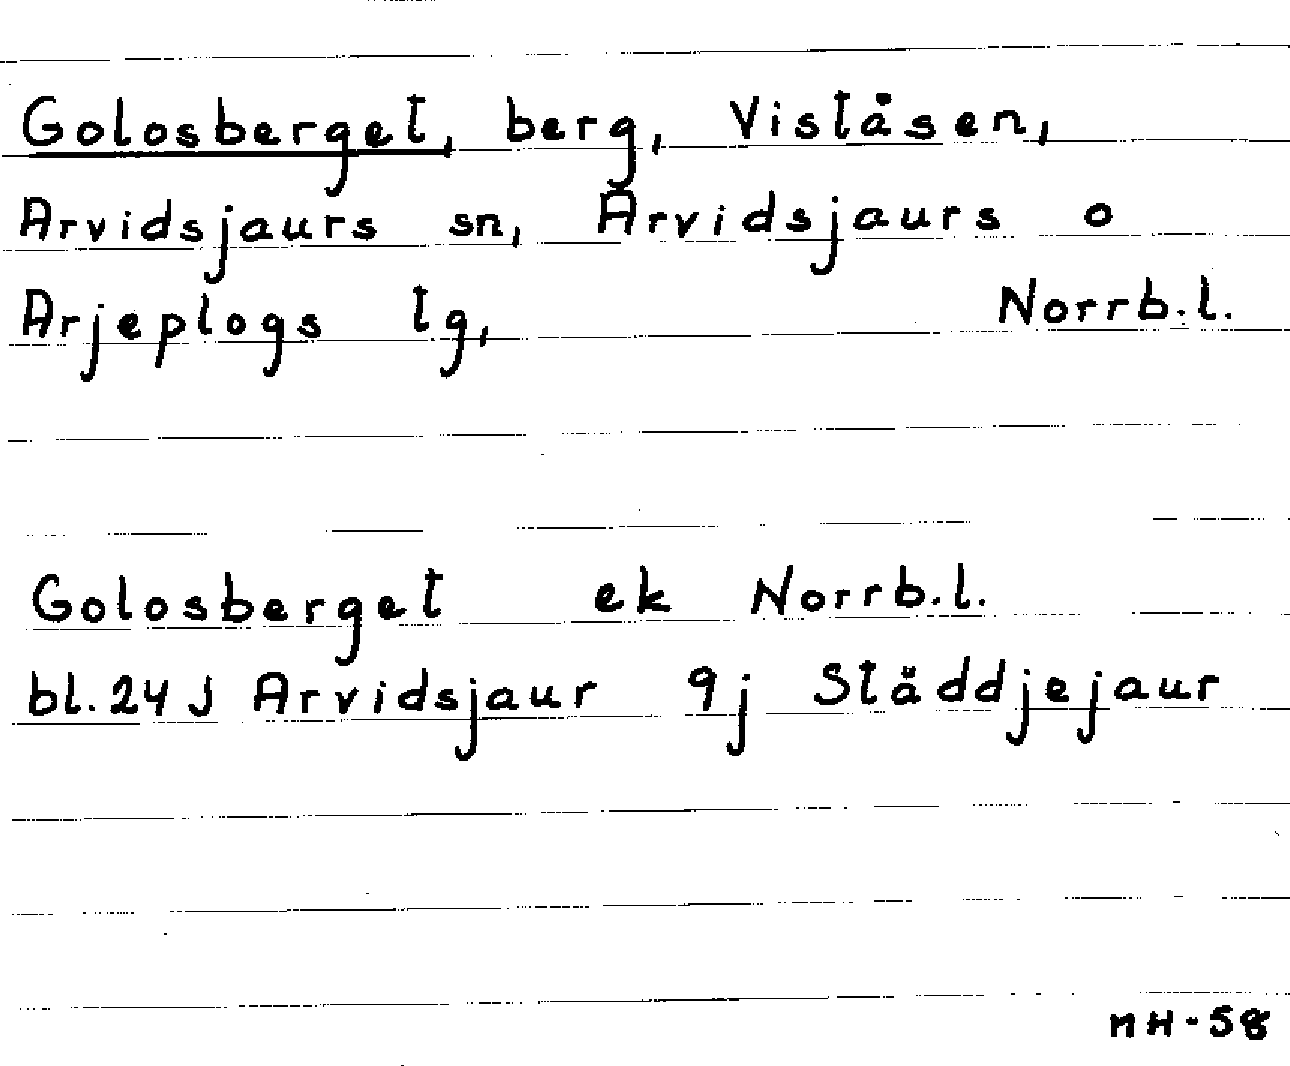 Golosberget, berg, Viståsen,
Arvidsjaurs sn, Arvidsjaurs o
Arjeplogs tg, Norrb.l.
Golosberget ek Norrb.l.
bl. 24 J Arvidsjaur 9j Ståddjejaur
MH-58